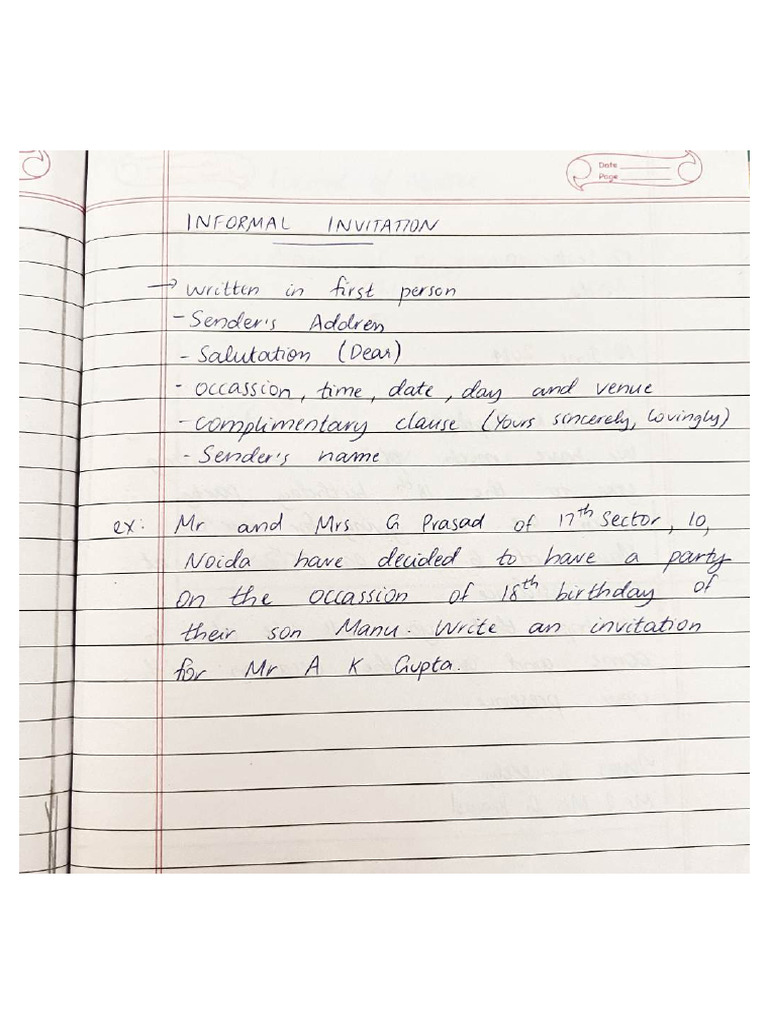 Date
Page
INFORMAL INVITATION
→ written in first person
- Sender's Addren
- Salutation (Dear)
- occassion, time, date, day and venue
- complimentary clause (Yours sincerely, lovingly)
- Sender's name
ex: Mr and Mrs G Prasad of 17th Sector, 10,
Noida have decided to have a party
on the occassion of 18th birthday of
their son Manu. Write an invitation
for Mr A K Gupta.